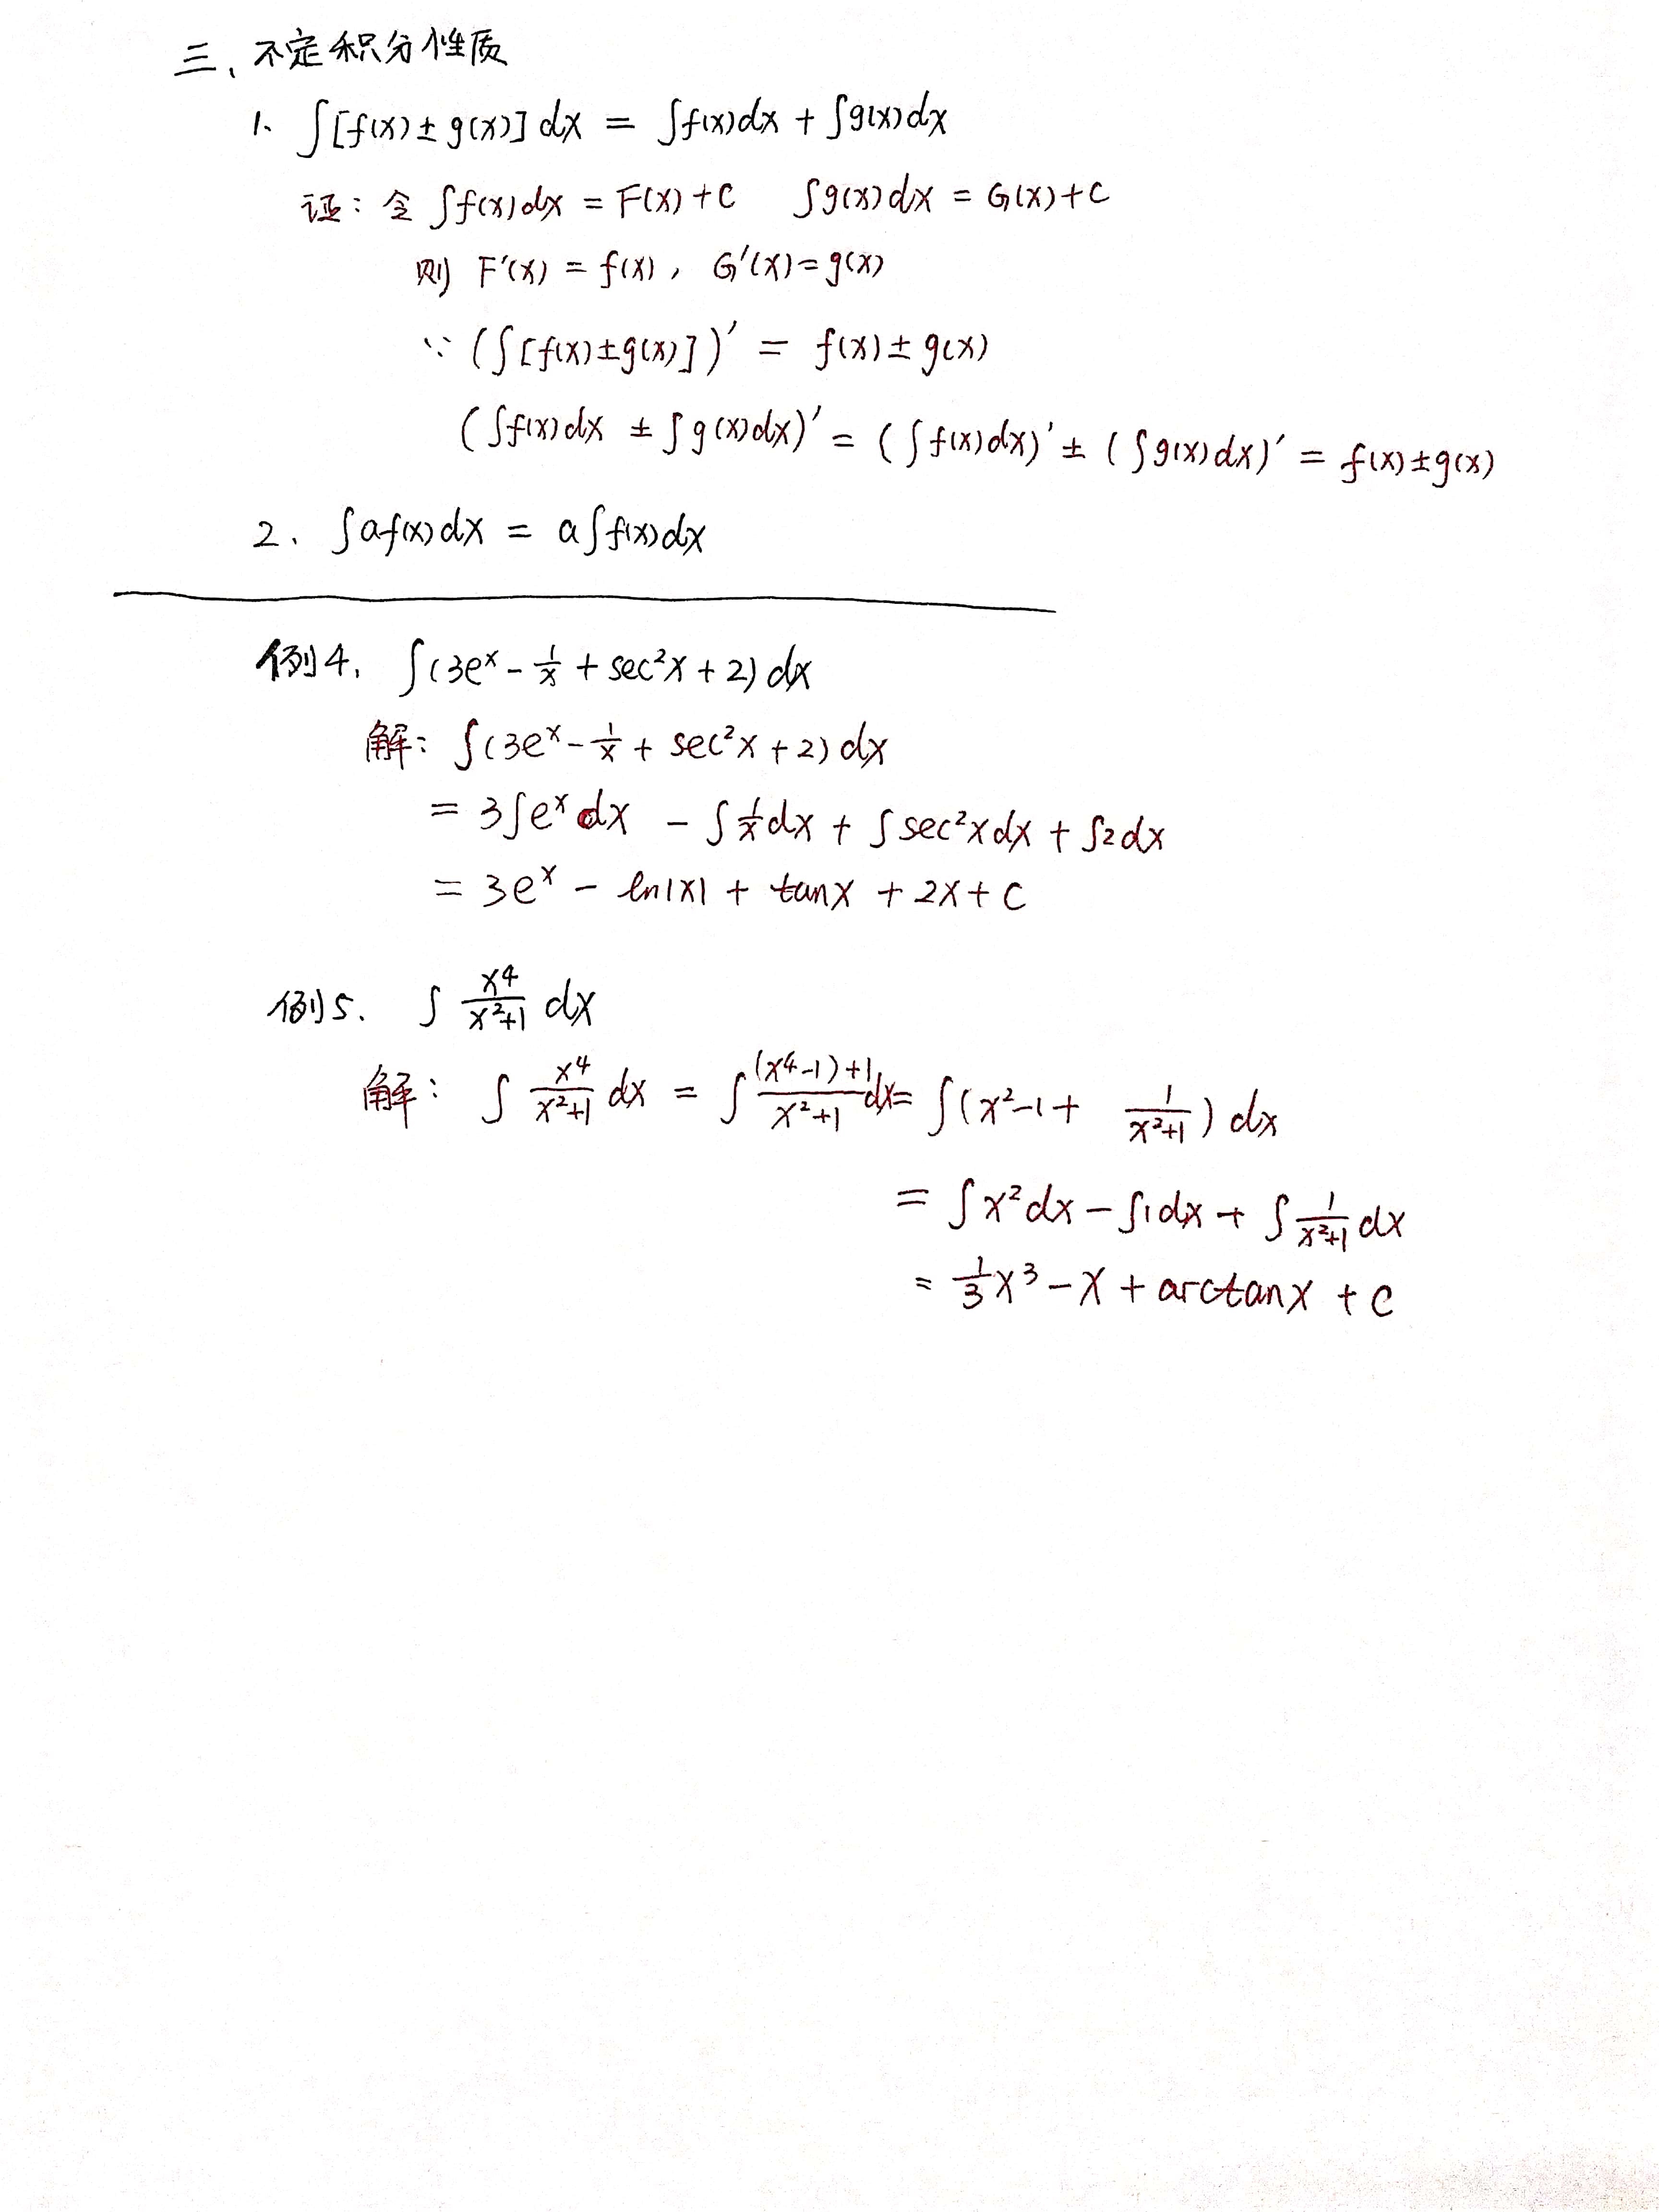 三、不定积分性质
1、 ∫[f(x)±g(x)]dx = ∫f(x)dx + ∫g(x)dx
证：令 ∫f(x)dx = F(x)+C ∫g(x)dx = G(x)+C
则 F′(x) = f(x)， G′(x)=g(x)
∵ (∫[f(x)±g(x)])′ = f(x)±g(x)
(∫f(x)dx ± ∫g(x)dx)′ = (∫f(x)dx)′ ± (∫g(x)dx)′ = f(x)±g(x)
2、 ∫af(x)dx = a∫f(x)dx
例4. ∫(3eˣ - 1/x + sec²x + 2)dx
解：∫(3eˣ - 1/x + sec²x + 2)dx
= 3∫eˣdx - ∫1/x dx + ∫sec²xdx + ∫2dx
= 3eˣ - ln|x| + tanx + 2x + C
例5. ∫ x⁴/(x²+1) dx
解：∫ x⁴/(x²+1) dx = ∫ ((x⁴-1)+1)/(x²+1) dx = ∫(x²-1 + 1/(x²+1)) dx
= ∫x²dx - ∫1dx + ∫ 1/(x²+1) dx
= 1/3 x³ - x + arctanx + C